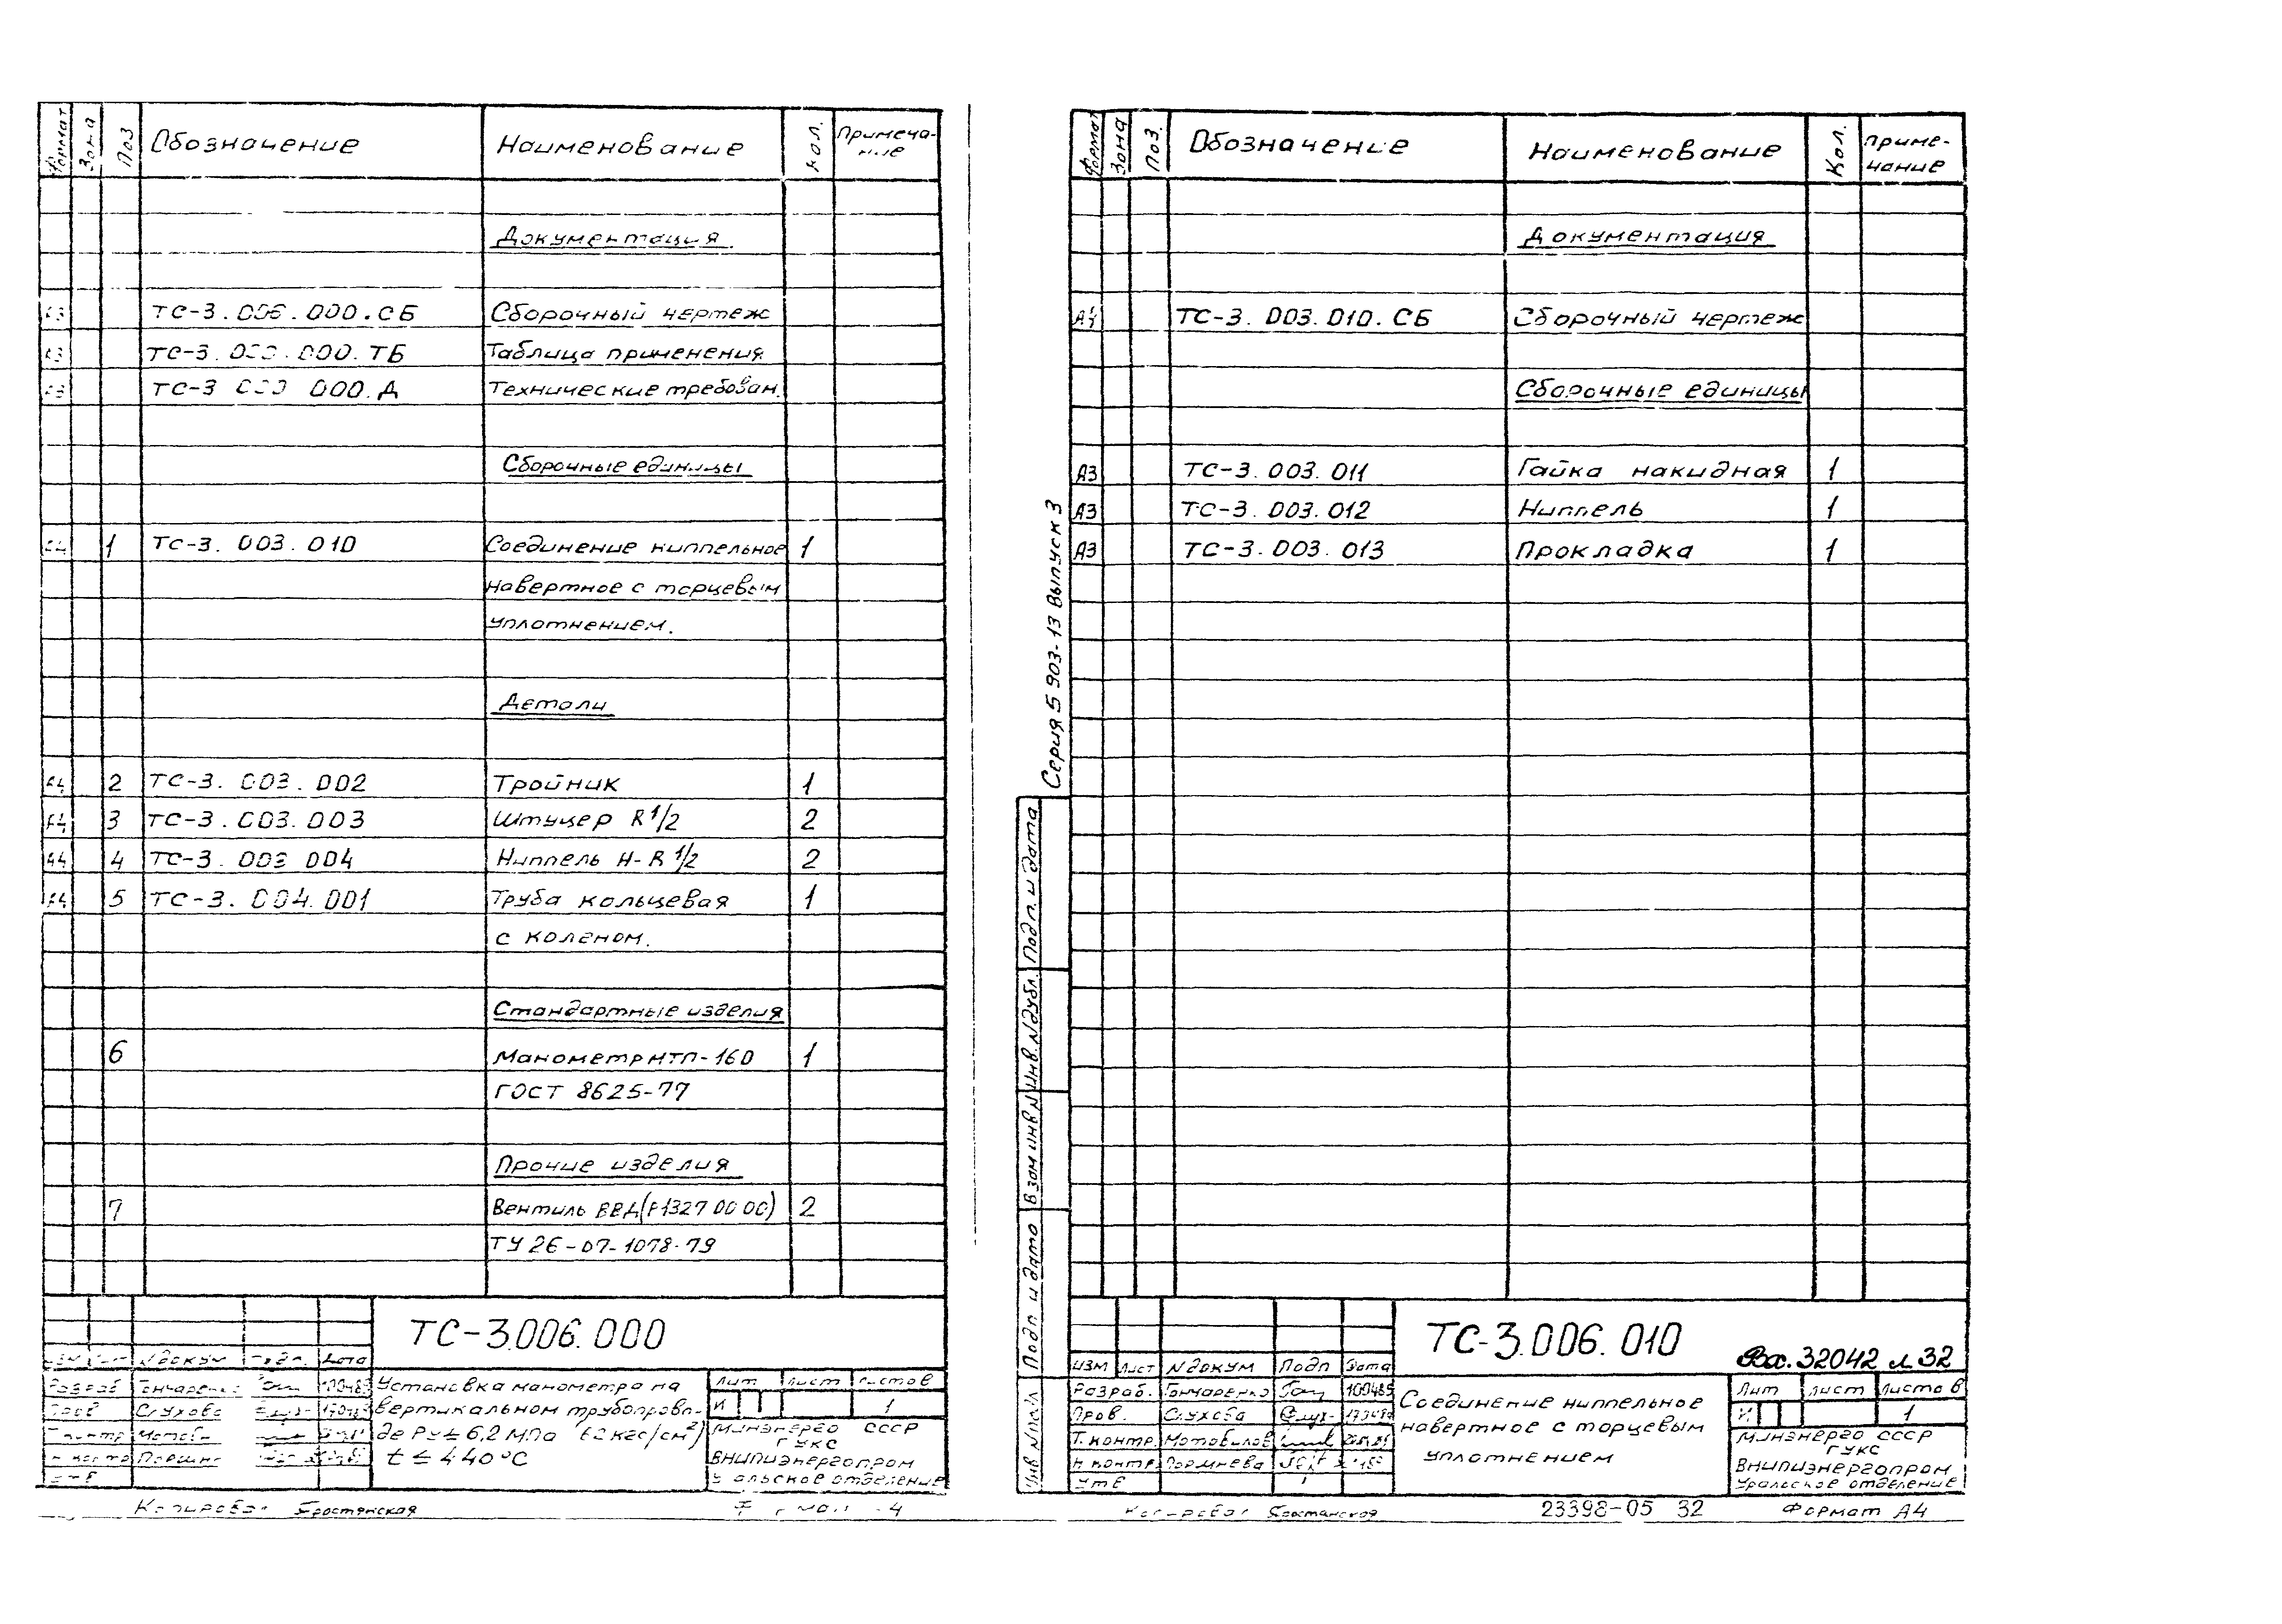 Формат Зона Поз Обозначение Наименование Кол. Примеча-
ние
Документация
ТС-3.006.000.СБ Сборочный чертеж
ТС-3. 000.ТБ Таблица применения
ТС-3 000.Д Технические требован.
Сборочные единицы
1 ТС-3.003.010 Соединение ниппельное 1
навертное с торцевым
уплотнением.
Детали
2 ТС-3.003.002 Тройник 1
3 ТС-3.003.003 Штуцер R1/2 2
4 ТС-3.003 004 Ниппель Н-R 1/2 2
5 ТС-3.004.001 Труба кольцевая 1
с коленом.
Стандартные изделия
6 Манометр МТП-160 1
ГОСТ 8625-77
Прочие изделия
7 Вентиль ВВД 2
ТУ 26-07-1078-79
ТС-3.006.000
N докум Дата
Разраб Гончаренко
Установка манометра на
вертикальном трубопрово-
де Ру≤6,2 МПа (62 кгс/см²)
t ≤ 440°С
Лит Лист Листов
И 1
Минэнерго СССР
ГУКС
ВНИПИэнергопром
Уральское отделение
Копировал Бростянская
Серия 5 903-13 Выпуск 3
Формат Зона Поз. Обозначение Наименование Кол. Приме-
чание
Документация
А4 ТС-3.003.010.СБ Сборочный чертеж
Сборочные единицы
А3 ТС-3.003.011 Гайка накидная 1
А3 ТС-3.003.012 Ниппель 1
А3 ТС-3.003.013 Прокладка 1
Подп. и дата
Инв. N дубл.
Взам инв N
Подп. и дата
Инв N подл
ТС-3.006.010
Вх. 32042 л 32
Изм Лист N докум Подп Дата
Разраб. Гончаренко
Пров. Слухова
Т. контр Мотовилов
Н контр
Утв
Соединение ниппельное
навертное с торцевым
уплотнением
Лит Лист Листов
И 1
Минэнерго СССР
ГУКС
ВНИПИэнергопром
Уральское отделение
Копировал Бростянская 23398-05 32 Формат А4